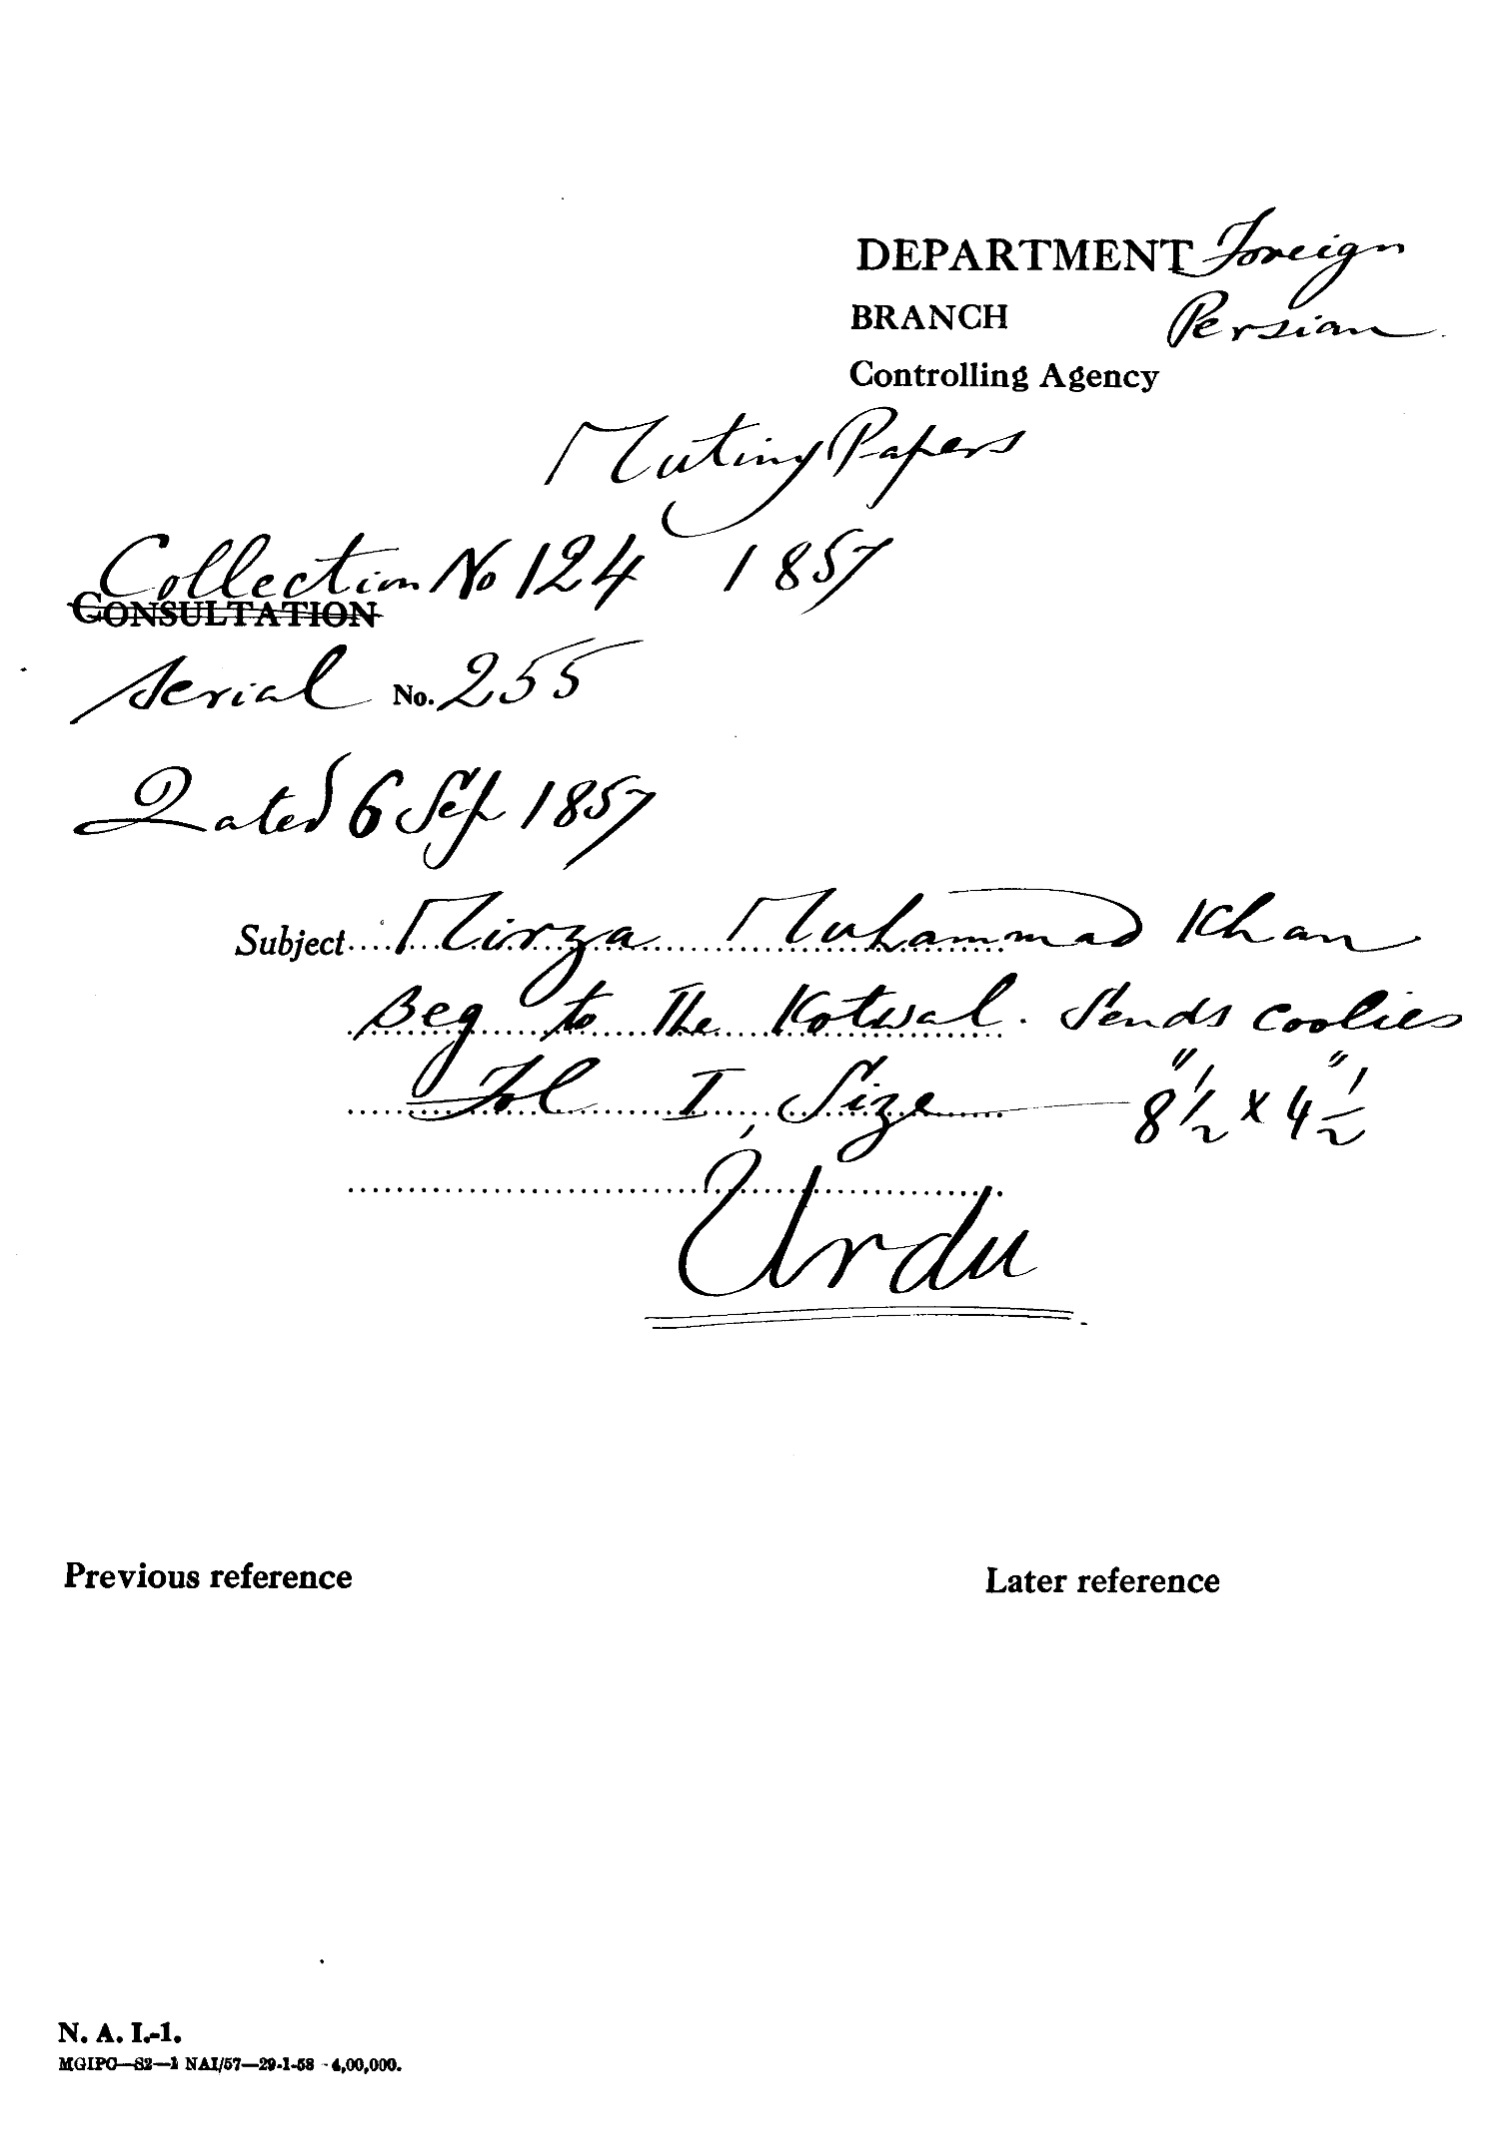 DEPARTMENT Foreign
BRANCH Persian
Controlling Agency
Mutiny Papers
Collection No 124 1857
CONSULTATION
Serial No. 255
Dated 6 Sep 1857
Subject Mirza Muhammad Khan
Beg to the Kotwal. Sends coolies
Fol I, Size — 8½" x 4½"
Urdu
Previous reference Later reference
N. A. I.-1.
MGIPC—S2—1 NAI/57—29-1-58 -4,00,000.